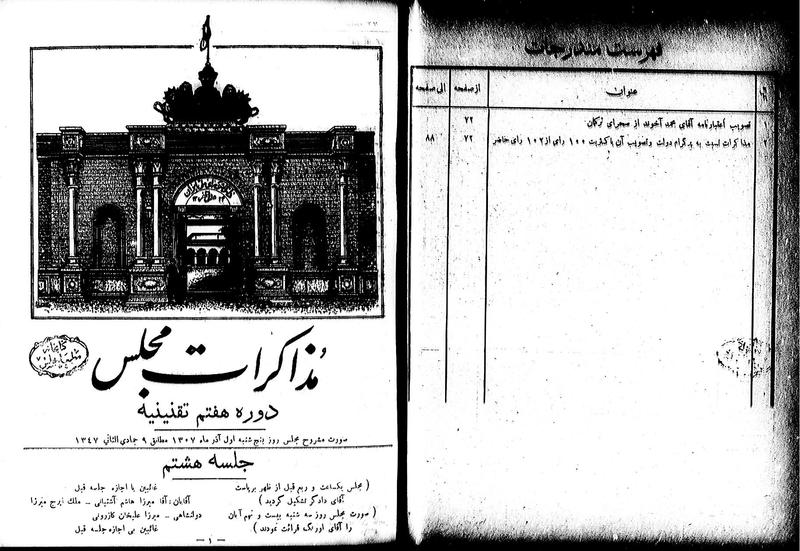 مذاکرات مجلس
دوره هفتم تقنینیه
صورت مشروح مجلس روز پنج شنبه اول آذر ماه ۱۳۰۷ مطابق ۹ جمادی الثانی ۱۳۴۷
جلسه هشتم
( مجلس یکساعت و ربع قبل از ظهر بریاست
آقای دادگر تشکیل گردید )
( صورت مجلس روز سه شنبه بیست و نهم آبان
را آقای اورنگ قرائت نمودند )
غائبین با اجازه جلسه قبل
آقایان : آقا میرزا هاشم آشتیانی ـ ملک ایرج میرزا
دولتشاهی ـ میرزا علیخان کازرونی
غائبین بی اجازه جلسه قبل
ـ ۱ ـ
فهرست مندرجات
عنوان از صفحه الی صفحه
۱ تصویب اعتبارنامه آقای محمد آخوند از صحرای ترکمان ۷۲
۲ مذاکرات نسبت به پرگرام دولت وتصویب آن باکثریت ۱۰۰ رای از ۱۰۲ رای حاضر ۷۲ ۸۸